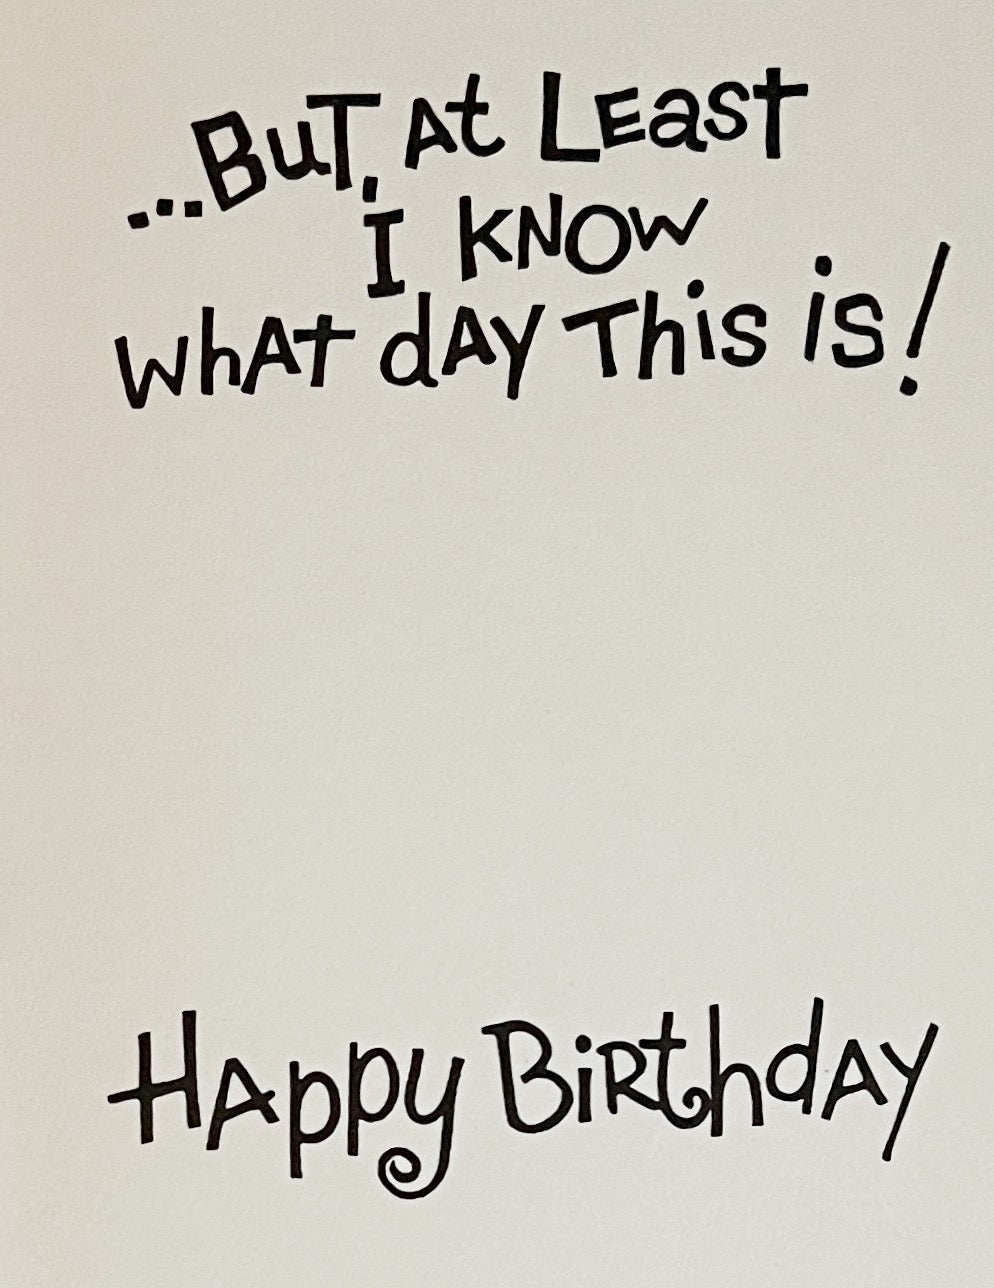 ...BuT, At LEast
I KNOW
whAT dAy This is!
HAppy BiRthdAy